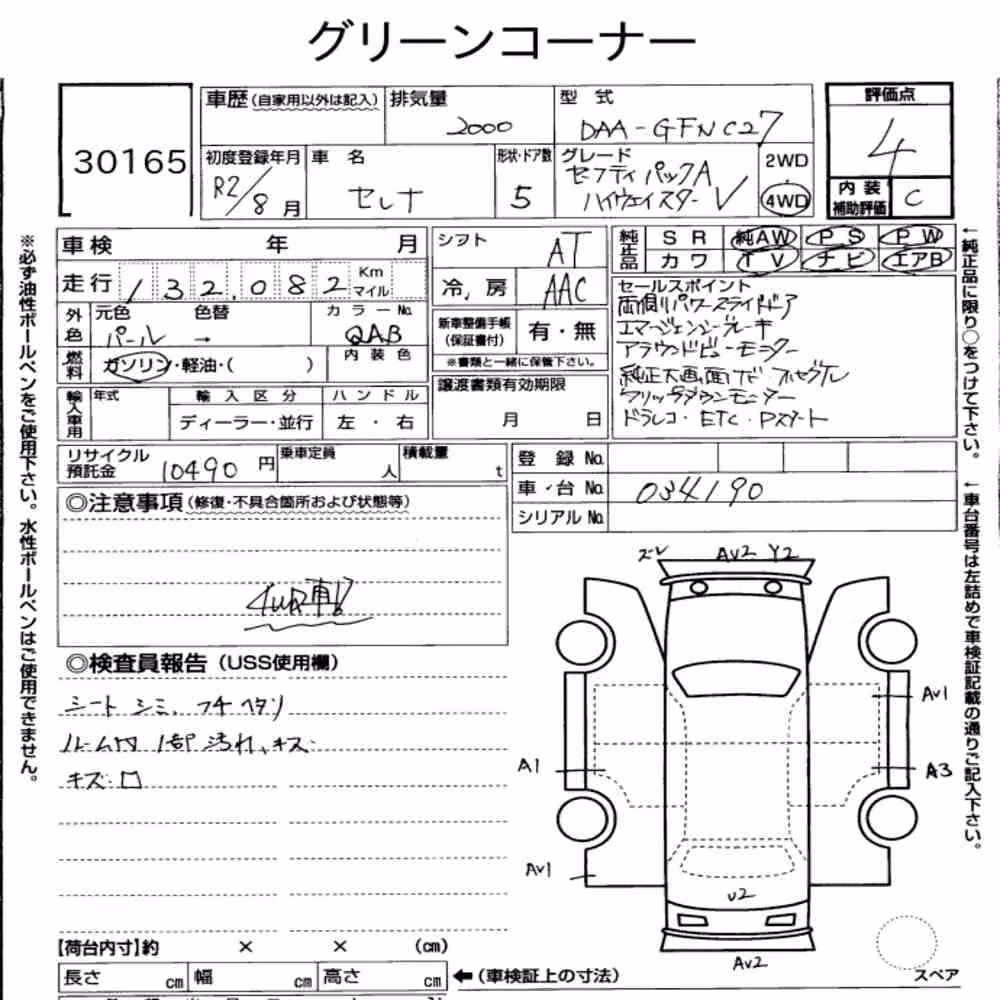 グリーンコーナー
30165
車歴(自家用以外は記入) 排気量 2000 型式 DAA-GFNC27
初度登録年月 R2/8月 車名 セレナ 形状・ドア数 5 グレード セーフティパックA ハイウェイスターV 2WD・4WD
評価点 4
内装補助評価 C
車検 年 月
走行 132,082 Km マイル
外色 元色 パール → 色替 カラーNo. QAB
燃料 ガソリン・軽油・( ) 内装色
輸入車用 年式 輸入区分 ハンドル
ディーラー・並行 左・右
シフト AT
冷,房 AAC
新車整備手帳(保証書付) 有・無
※書類と一緒に保管下さい。
譲渡書類有効期限
月 日
純正品 SR 純AW PS PW
カワ TV ナビ エアB
セールスポイント
両側パワースライドドア
エマージェンシーブレーキ
アラウンドビューモニター
純正大画面ナビ フルセグTV
フリップダウンモニター
ドラレコ・ETC・Pスタート
リサイクル預託金 10490円 乗車定員 人 積載量 t
登録No.
車台No. 034190
シリアルNo.
◎注意事項(修復・不具合箇所および状態等)
4WD車!!
◎検査員報告(USS使用欄)
シート シミ、フチヘタリ
ルーム内 1部 汚れ、キズ
キズ ロ
ズレ AV2 Y2
AV1
A1 A3
AV1
U2
AV2
スペア
【荷台内寸】約 × × (cm)
長さ cm 幅 cm 高さ cm ←(車検証上の寸法)
※必ず油性ボールペンをご使用下さい。水性ボールペンはご使用できません。
←純正品に限り○をつけて下さい。
←車台番号は左詰めで車検証記載の通りご記入下さい。